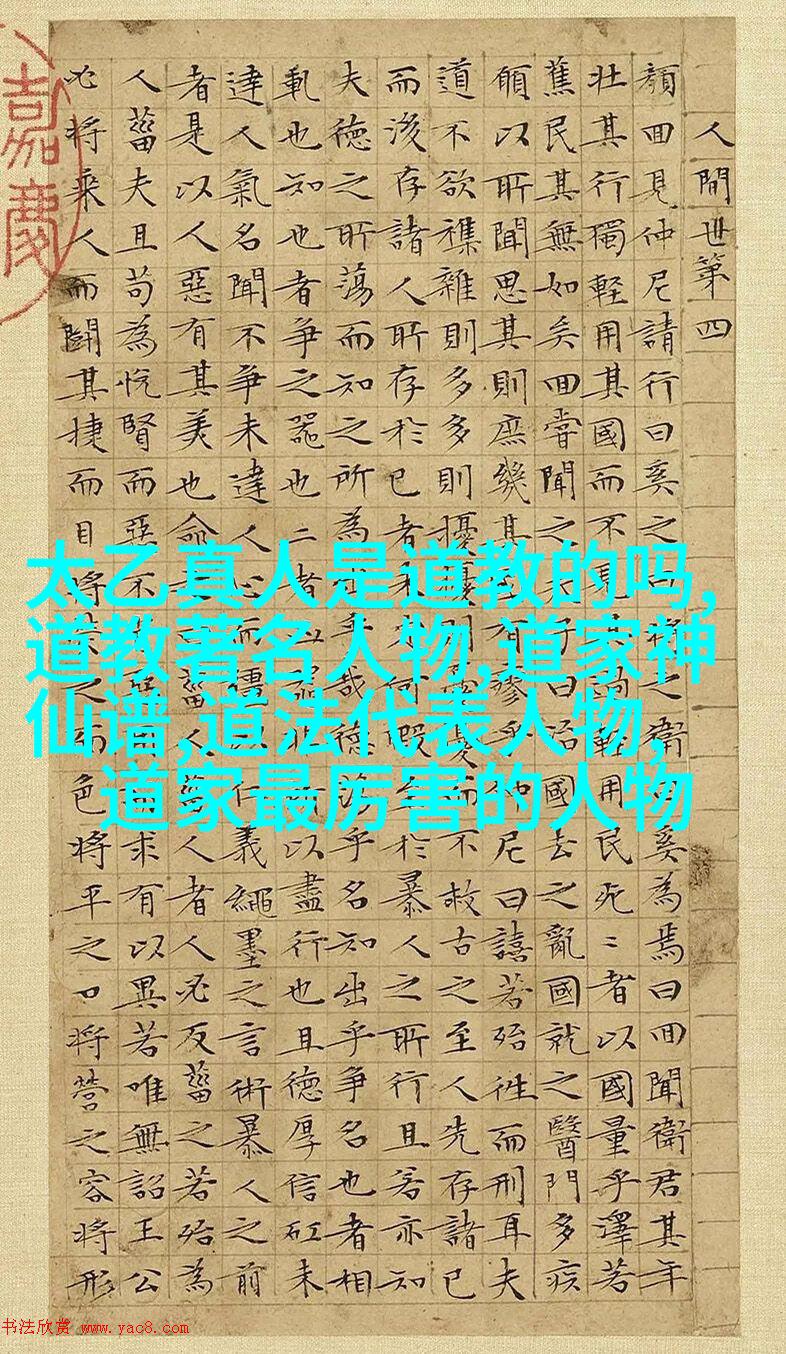 人間世第四
顏回見仲尼請行曰奚之曰將之衛曰奚為焉曰回聞衛君其年
壯其行獨輕用其國而不輕用民死〻者以國量乎澤若
蕉民其無如矣回嘗聞之夫子曰治國去之亂國就之醫門多疾
願以所聞思其則庶幾其有瘳乎仲尼曰譆若殆往而刑耳夫
道不欲襍雜則多多則擾憂而不救古之至人先存諸已
而後存諸人所存於已者未何暇至於暴人之所行且若亦知
夫德之所蕩而知之所為乎哉德蕩乎名知出乎爭名也者相
軋也知也者爭之器也二者以盡行也且德厚信矼未
達人氣名聞不爭未達人心而彊仁義繩墨之言術暴人之前
者是以人惡有其美也命菑人人者人必反菑之若殆為
人菑夫且苟為悅賢而惡不求有以異若唯無詔王公
必將乘人而鬭其捷而目將之而色將平之口將營之容將形
嘉慶
太乙真人是道教的吗,
道教著名人物,道家神
仙谱,道法代表人物,
道家最厉害的人物
书法欣赏 www.yac8.com